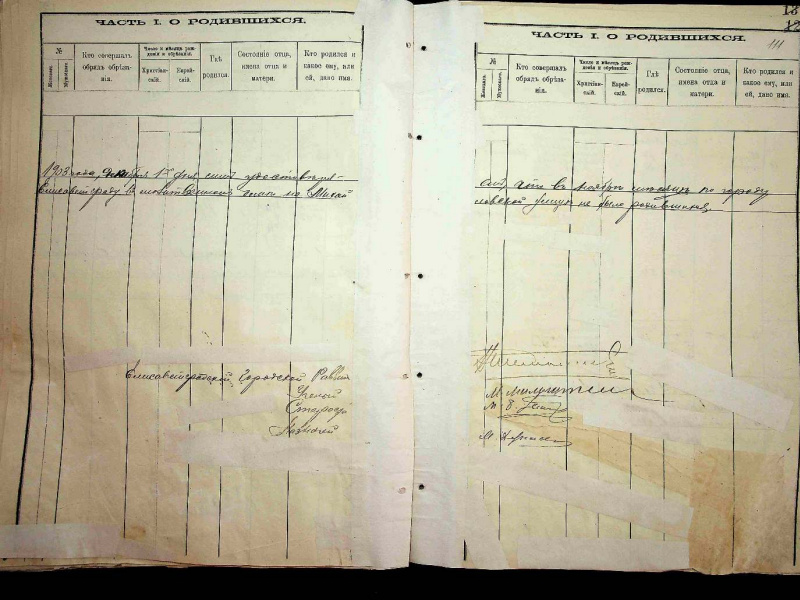 ЧАСТЬ I. О РОДИВШИХСЯ.
№
Женскаго.
Мужскаго.
Кто совершалъ обрядъ обрѣза-
нія.
Число и мѣсяцъ рож-
денія и обрѣзанія.
Христіан-
скій.
Еврей-
скій.
Гдѣ
родился.
Состояніе отца,
имена отца и
матери.
Кто родился и
какое ему, или
ей, дано имя.
1903 года, Декабря 1 дня симъ удостовѣря-
Елисаветграду въ молитвенномъ домѣ на Миха
Елисаветградскій Городской Раввинъ
Ученый
Староста
Казначей
13
12
111
ЧАСТЬ I. О РОДИВШИХСЯ.
№
Женскаго.
Мужскаго.
Кто совершалъ
обрядъ обрѣза-
нія.
Число и мѣсяцъ рож-
денія и обрѣзанія.
Христіан-
скій.
Еврей-
скій.
Гдѣ
родился.
Состояніе отца,
имена отца и
матери.
Кто родился и
какое ему, или
ей, дано имя.
что въ Ноябрѣ мѣсяцѣ по городу
ловской улицѣ не было родившихся
М.
М.
М.